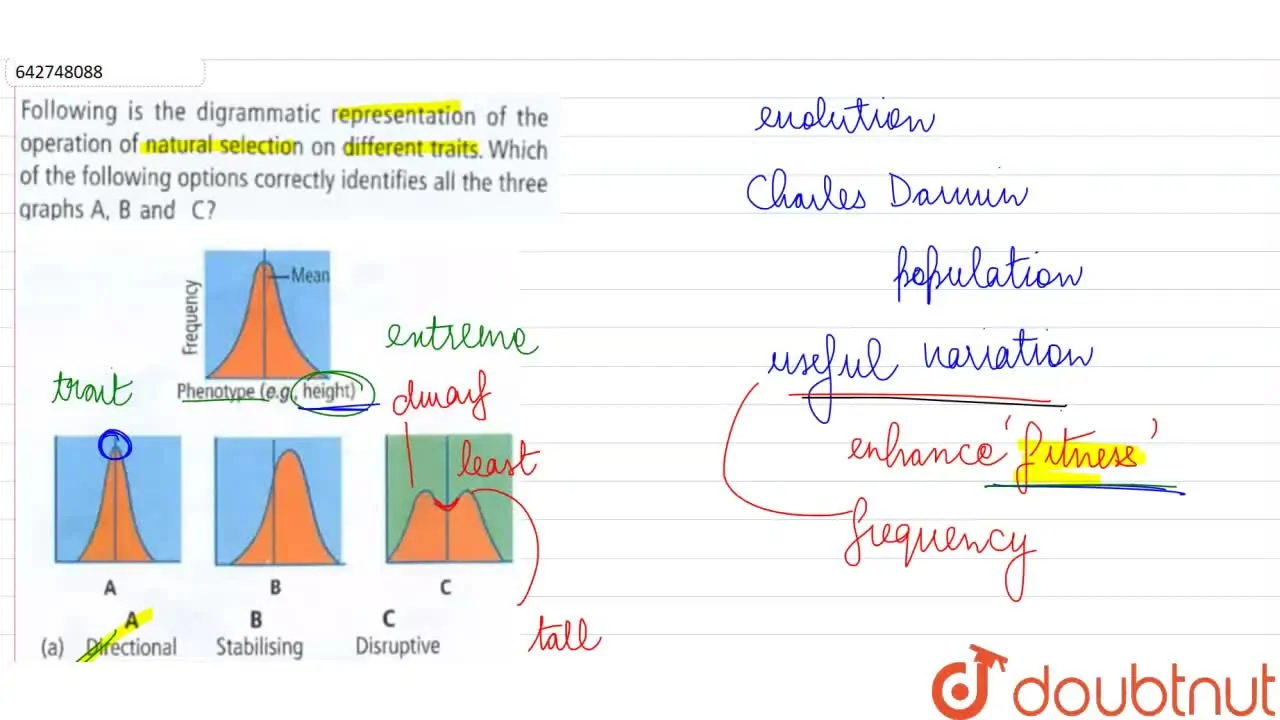 642748088
Following is the digrammatic representation of the
operation of natural selection on different traits. Which
of the following options correctly identifies all the three
graphs A, B and C?
Mean
Frequency
Phenotype (e.g., height)
trait
extreme
dwarf
least
tall
A B C
A B C
(a) Directional Stabilising Disruptive
evolution
Charles Darwin
population
useful variation
enhance 'fitness'
frequency
doubtnut